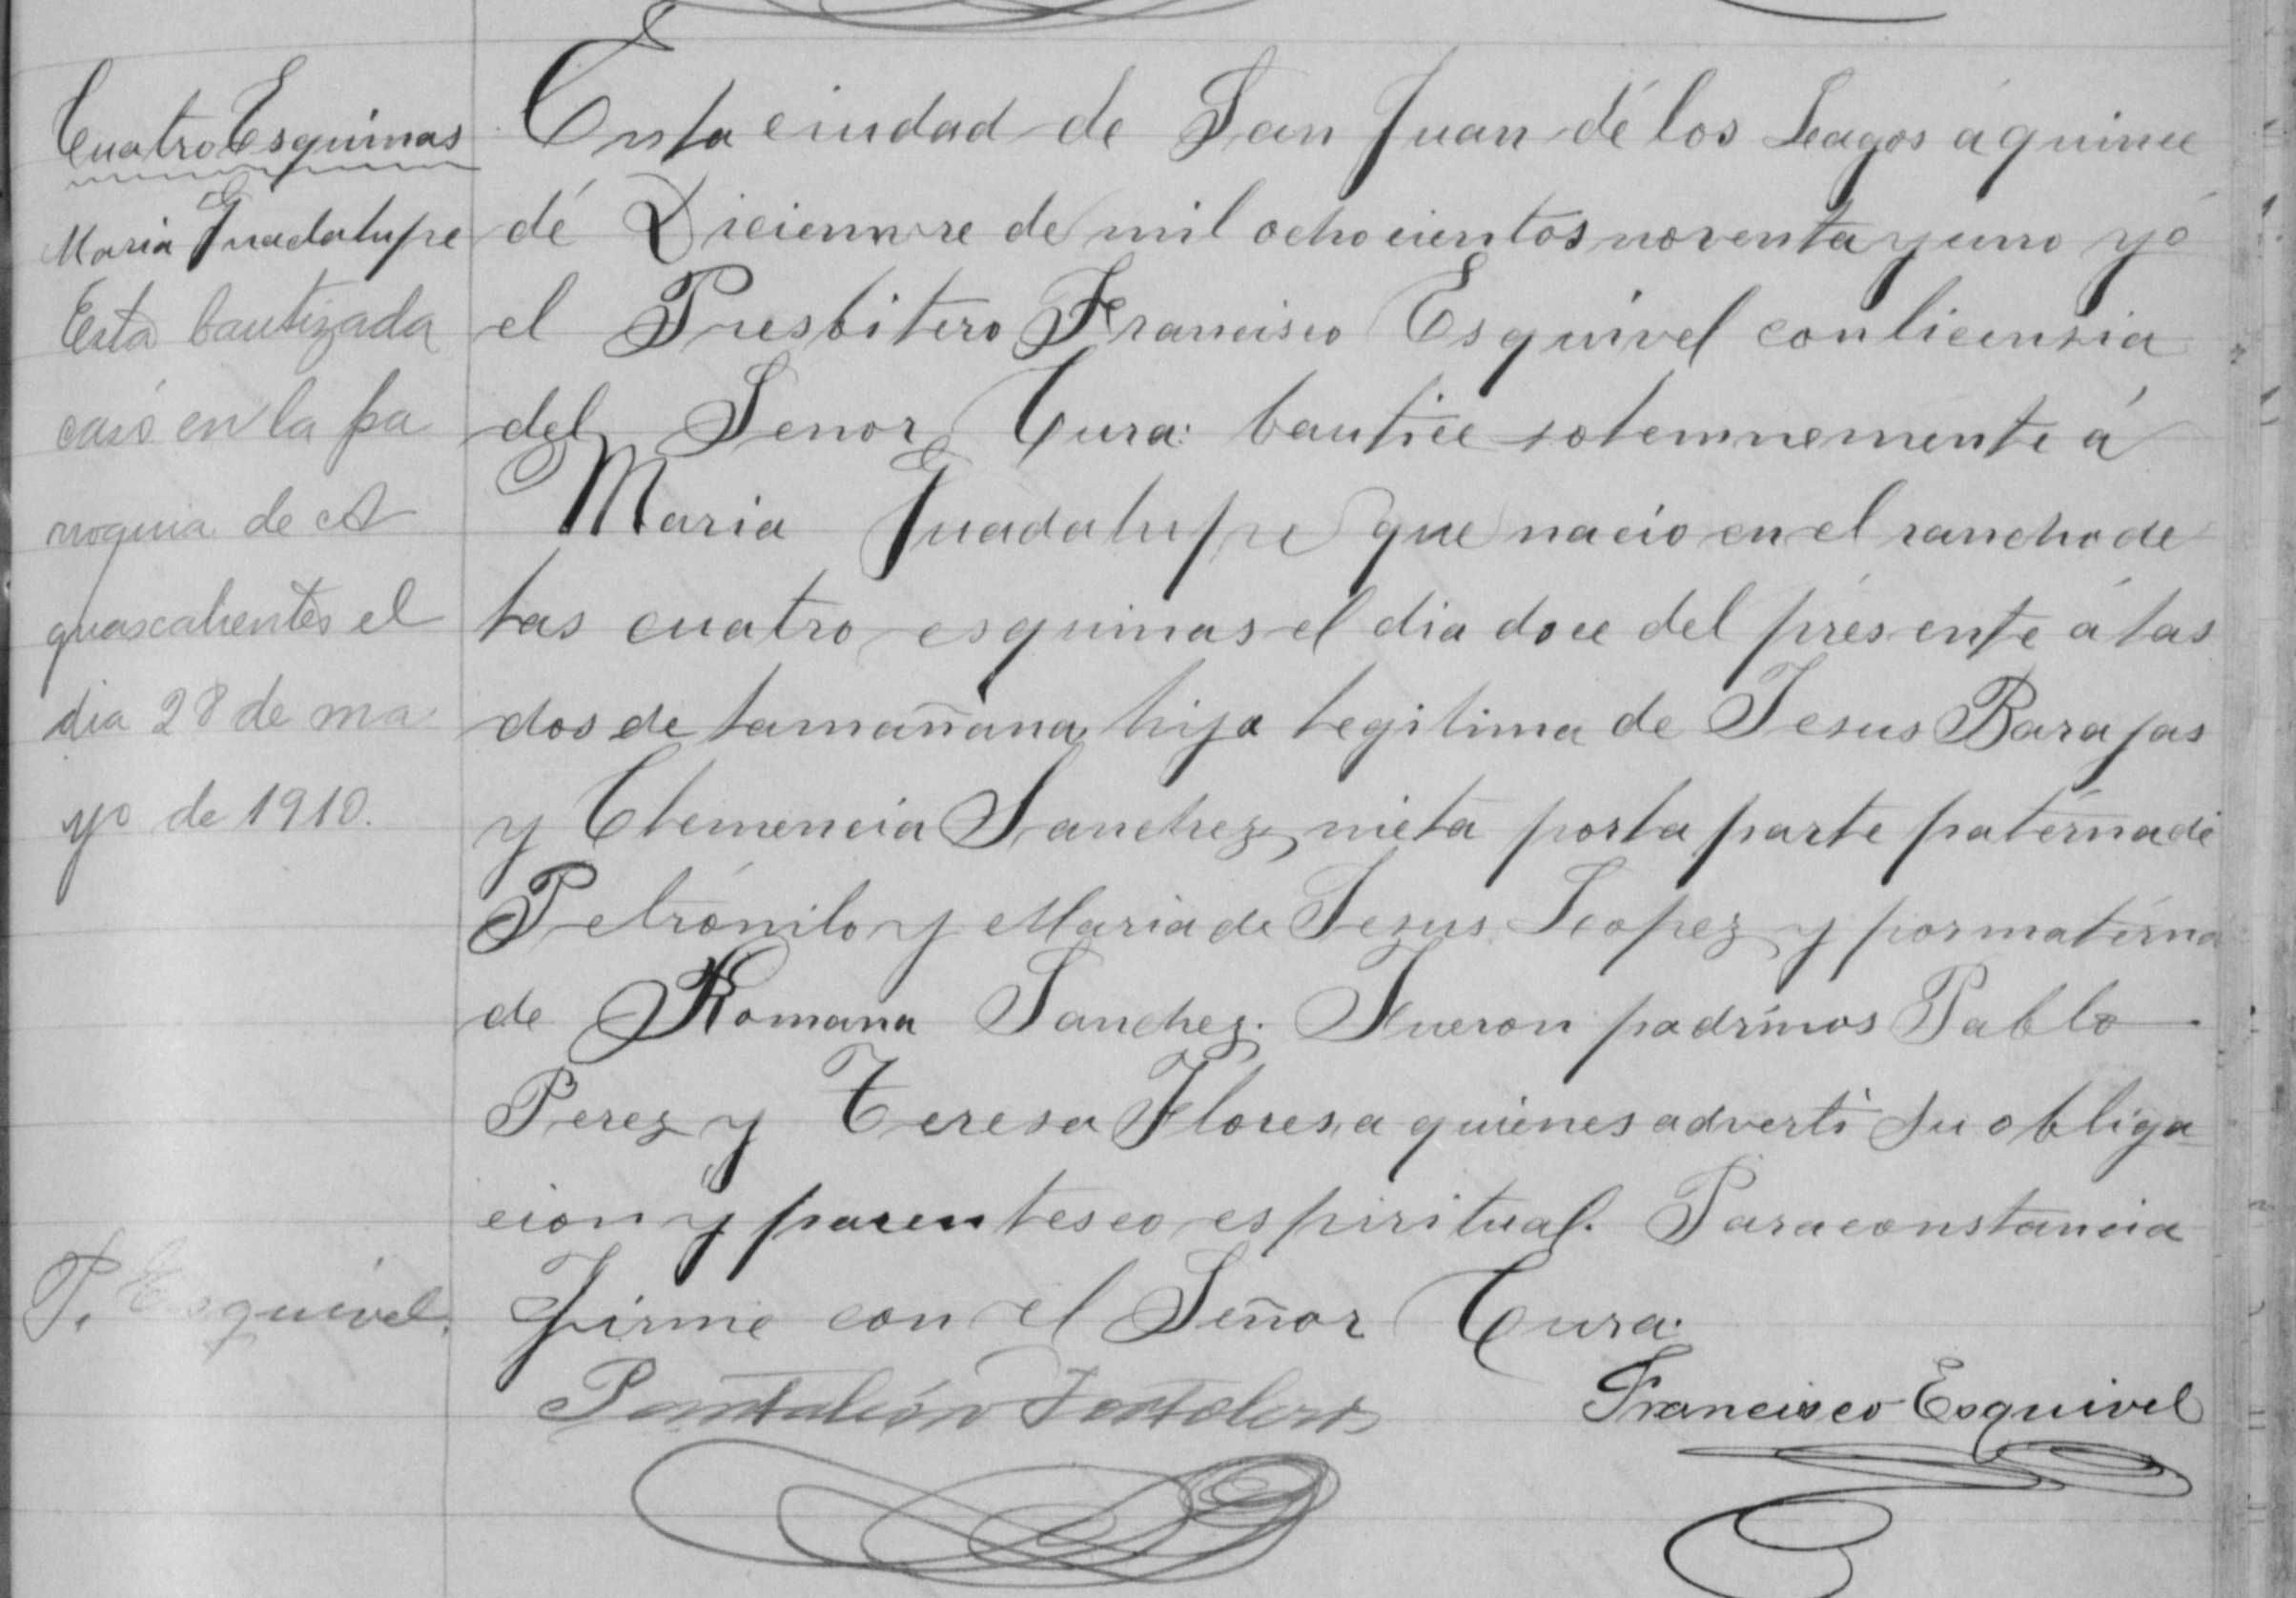 Cuatro Esquinas
Maria Guadalupe
Esta bautizada
casó en la pa
rroquia de A
guascalientes el
dia 28 de ma
yo de 1910.
P. Esquivel.
En la ciudad de San Juan de los Lagos á quince
de Diciembre de mil ochocientos noventa y uno yó
el Presbitero Francisco Esquivel con licensia
del Señor Cura: bautice solemnemente á
Maria Guadalupe que nacio en el rancho de
las cuatro esquinas el dia doce del presente á las
dos de la mañana, hija legitima de Jesus Barajas
y Clemencia Sanchez, nieta por la parte paterna de
Petronilo y Maria de Jesus Lopez y por materna
de Romana Sanchez. Fueron padrinos Pablo
Perez y Teresa Flores, a quienes adverti su obliga
cion y parentesco espiritual. Para constancia
firme con el Señor Cura.
Pantaleón Tortolero
Francisco Esquivel